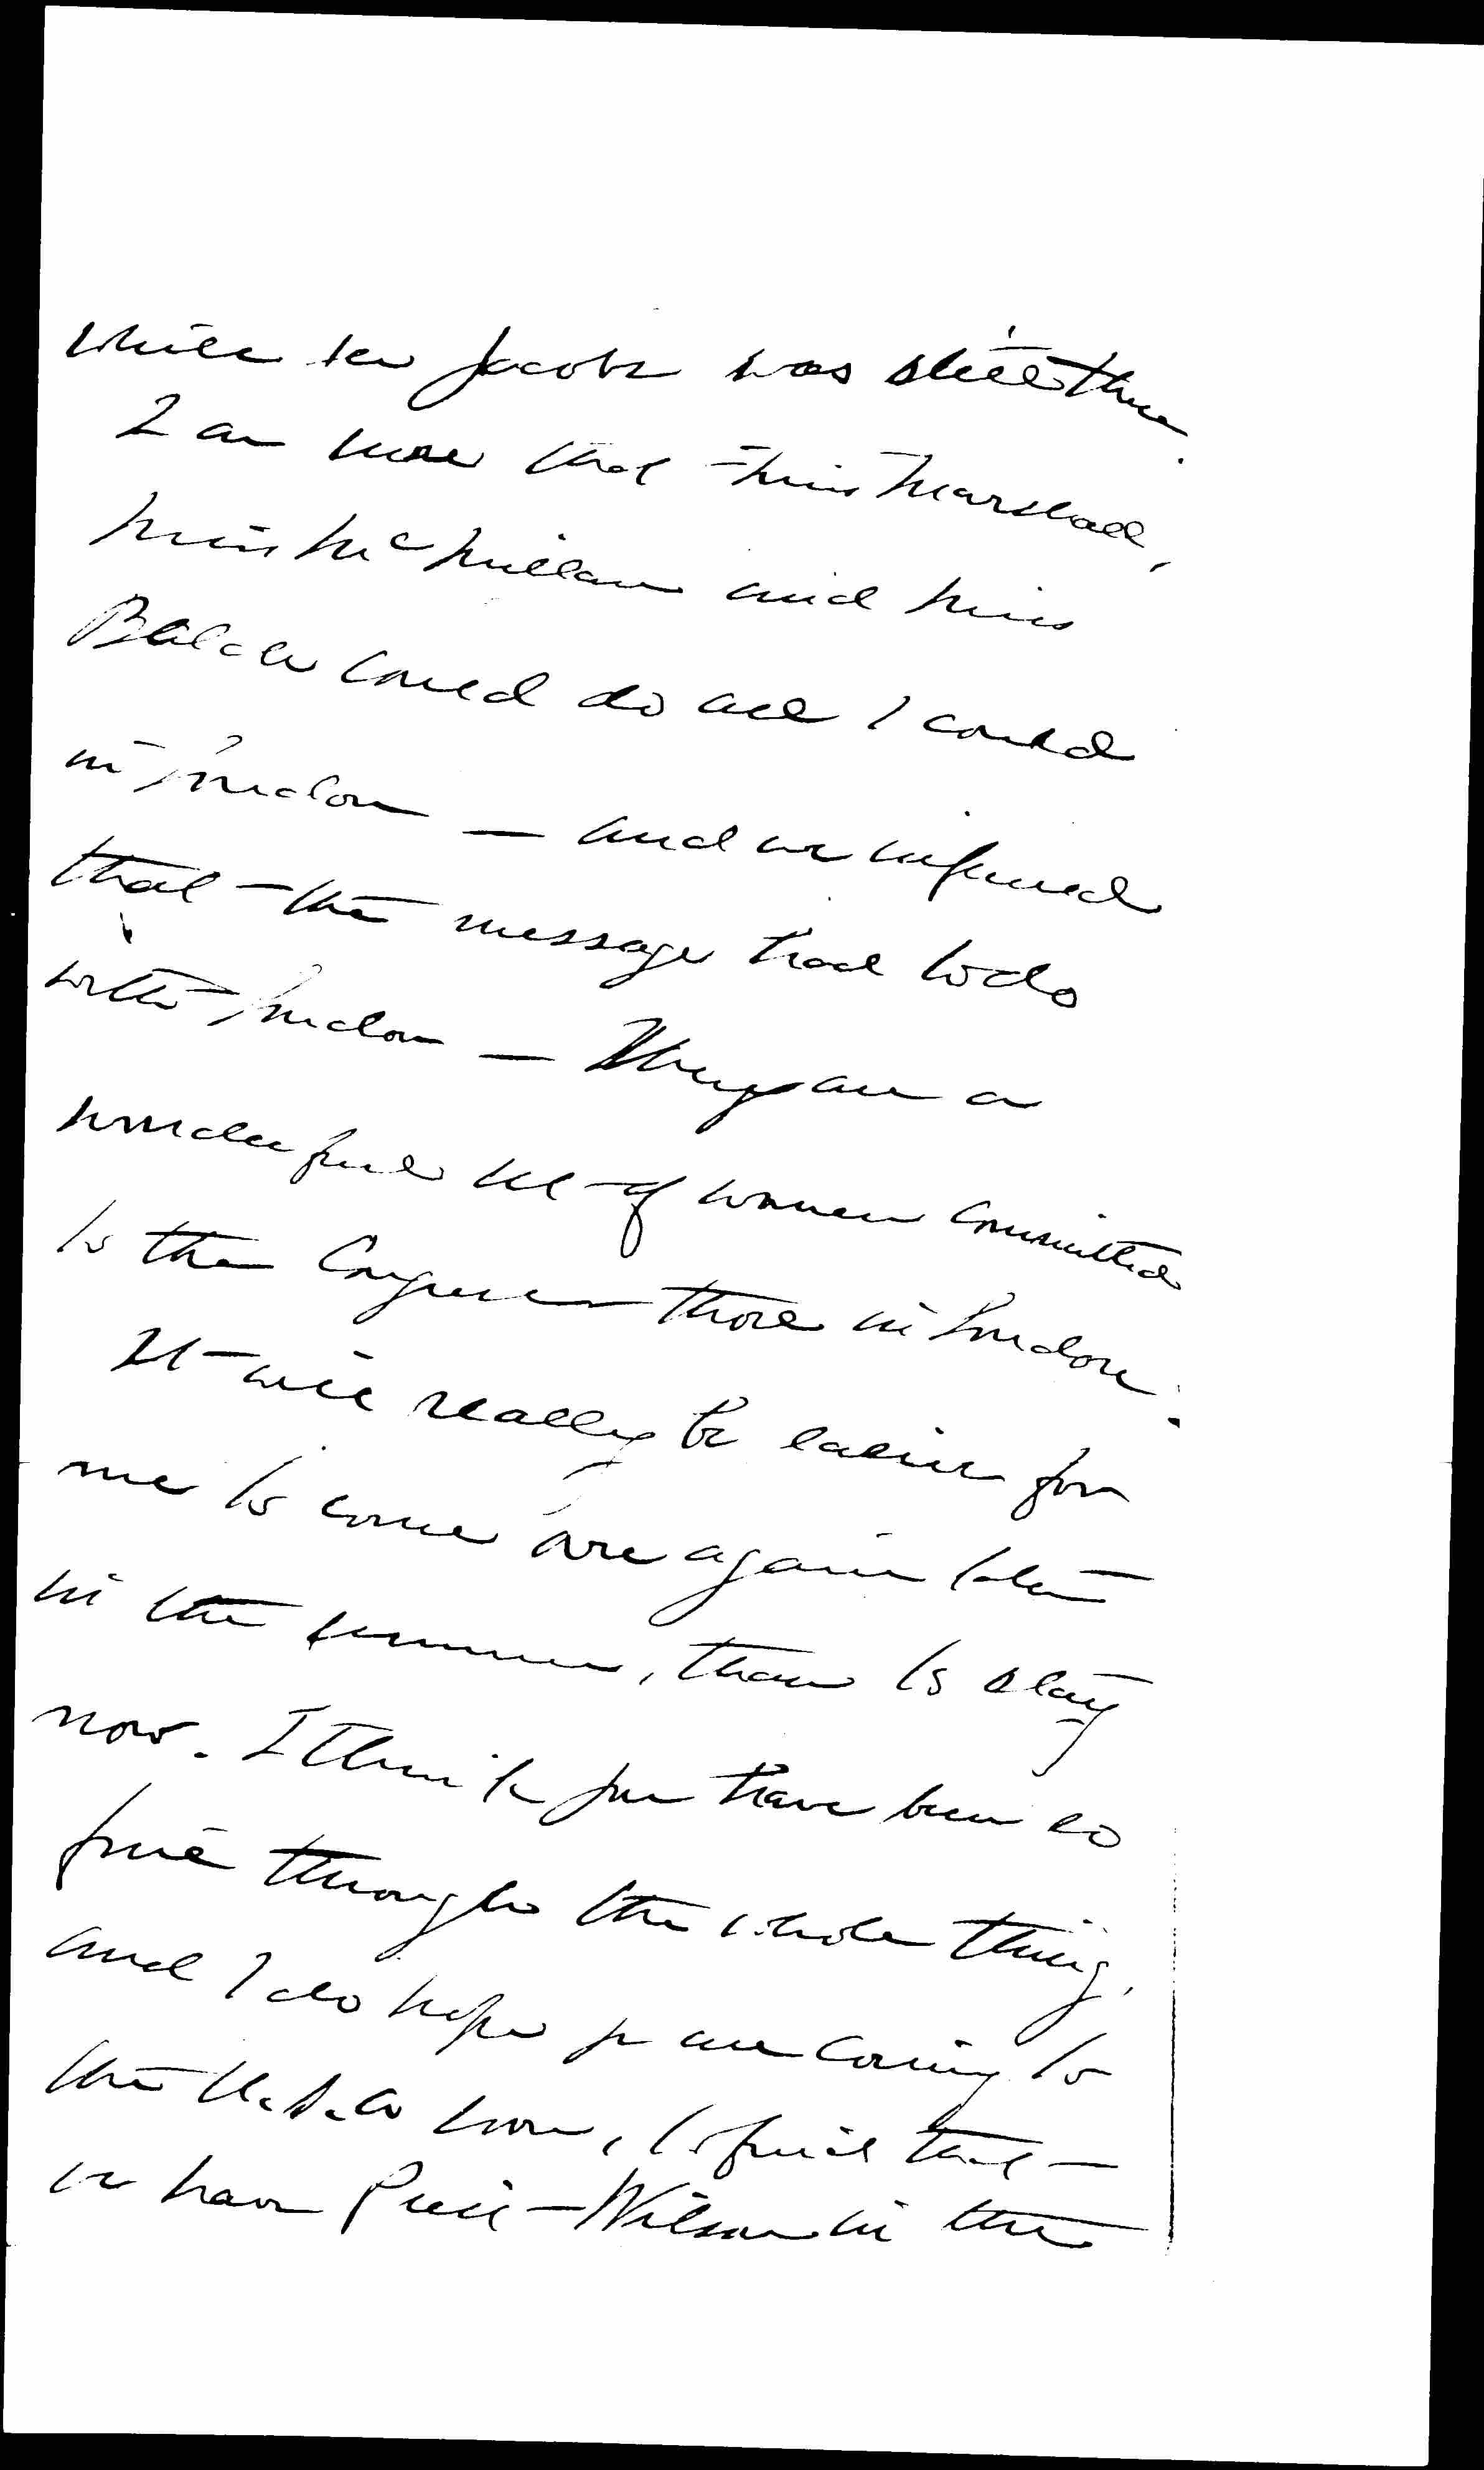 while Dr Jacobs was still there.
I am sure that Miss Marshall,
Miss McMillan and Miss
Balch could do all I could
in London — and we inferred
that the message had to do
with London — They are a
wonderful set of women committed
to the Congress those in London.
It will really be easier for
me to come over again later
in the summer, than to stay
now. I think you have been so
fine through the whole thing,
and I do hope you are coming to
the U.S.A. now, to find that
we have Pres. Wilson in the